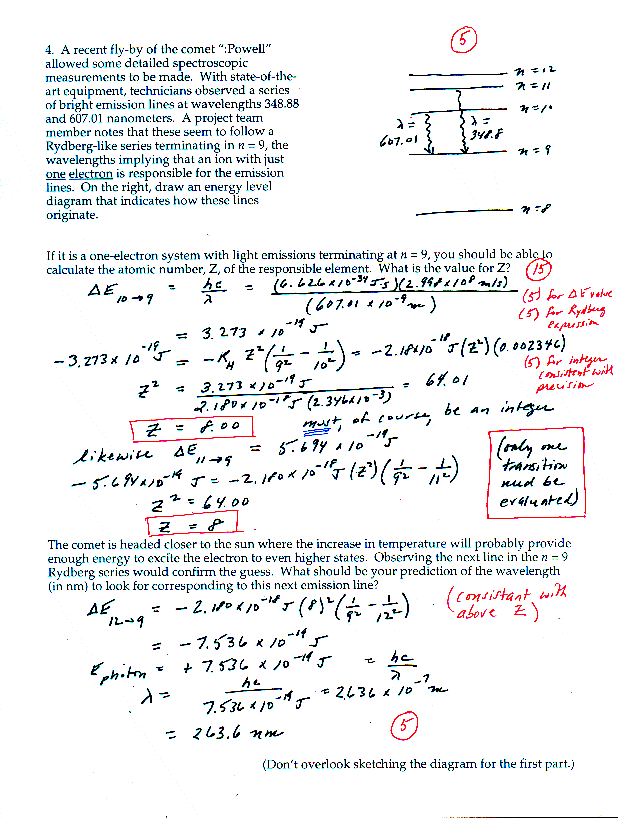 (5)
4. A recent fly-by of the comet ":Powell"
allowed some detailed spectroscopic
measurements to be made. With state-of-the-
art equipment, technicians observed a series
of bright emission lines at wavelengths 348.88
and 607.01 nanometers. A project team
member notes that these seem to follow a
Rydberg-like series terminating in n = 9, the
wavelengths implying that an ion with just
one electron is responsible for the emission
lines. On the right, draw an energy level
diagram that indicates how these lines
originate.
n = 12
n = 11
n = 10
λ = 607.01
λ = 348.8
n = 9
n = 8
If it is a one-electron system with light emissions terminating at n = 9, you should be able to
calculate the atomic number, Z, of the responsible element. What is the value for Z? (15)
ΔE 10→9 = hc/λ = (6.626 x 10^-34 J·s)(2.998 x 10^8 m/s) / (607.01 x 10^-9 m)
(5) for ΔE value
(5) for Rydberg expression
= 3.273 x 10^-19 J
-3.273 x 10^-19 J = -R_H Z^2 (1/9^2 - 1/10^2) = -2.18x10^-18 J (Z^2)(0.002346)
(5) for integer consistent with precision
Z^2 = 3.273 x 10^-19 J / 2.180 x 10^-18 J (2.346x10^-3) = 64.01
Z = 8.00 must, of course, be an integer
likewise ΔE 11→9 = 5.694 x 10^-19 J
-5.694x10^-19 J = -2.180 x 10^-18 J (Z^2)(1/9^2 - 1/11^2)
Z^2 = 64.00
Z = 8
(only one
transition
need be
evaluated)
The comet is headed closer to the sun where the increase in temperature will probably provide
enough energy to excite the electron to even higher states. Observing the next line in the n = 9
Rydberg series would confirm the guess. What should be your prediction of the wavelength
(in nm) to look for corresponding to this next emission line?
ΔE 12→9 = -2.180 x 10^-18 J (8)^2 (1/9^2 - 1/12^2)
(consistant with
above Z)
= -7.536 x 10^-19 J
E photon = +7.536 x 10^-19 J = hc/λ
λ = hc / 7.536 x 10^-19 J = 2.636 x 10^-7 m
= 263.6 nm
(5)
(Don't overlook sketching the diagram for the first part.)